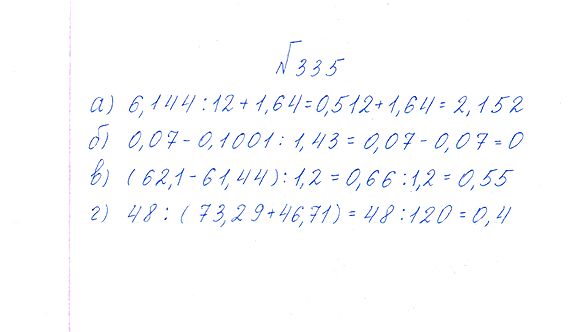 №335
а) 6,144:12+1,64=0,512+1,64=2,152
б) 0,07-0,1001:1,43=0,07-0,07=0
в) (62,1-61,44):1,2=0,66:1,2=0,55
г) 48:(73,29+46,71)=48:120=0,4